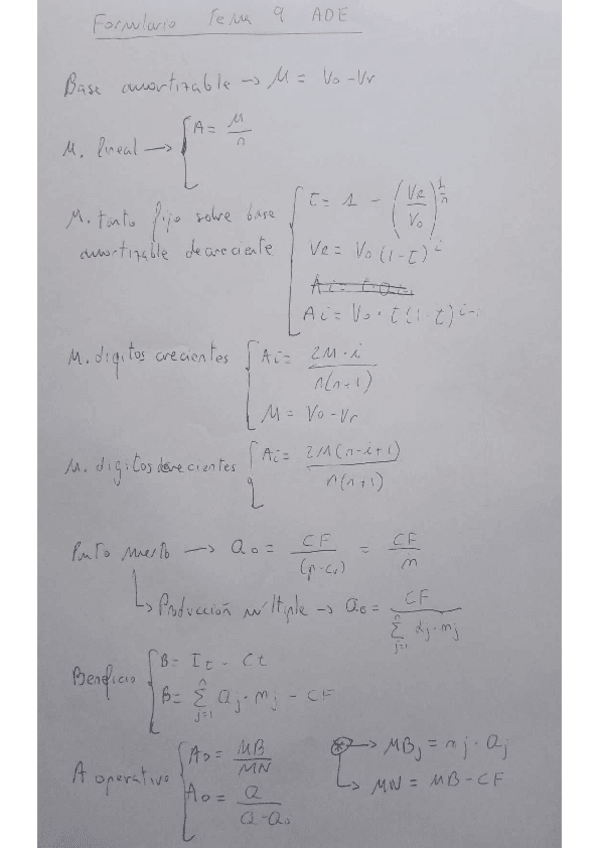 Formulario Tema 9 ADE
Base amortizable → M = Vo - Vr
M. lineal → { A = M/n
M. tanto fijo sobre base amortizable decreciente { t = 1 - (VR/Vo)^(1/n)
VR = Vo (1-t)^i
Ai = Vo · t (1-t)^(i-1)
M. digitos crecientes { Ai = 2M·i / n(n+1)
M = Vo - Vr
M. digitos decrecientes { Ai = 2M(n-i+1) / n(n+1)
Punto muerto → Qo = CF / (p-cv) = CF / m
↳ Producción múltiple → Qo = CF / Σ_{j=1}^{n} αj·mj
Beneficio { B = It - Ct
B = Σ_{j=1}^{n} Qj·mj - CF
A operativo { Ao = MB/MN
Ao = Q / Q-Qo
⊛ → MBj = mj · Qj
↳ MN = MB - CF